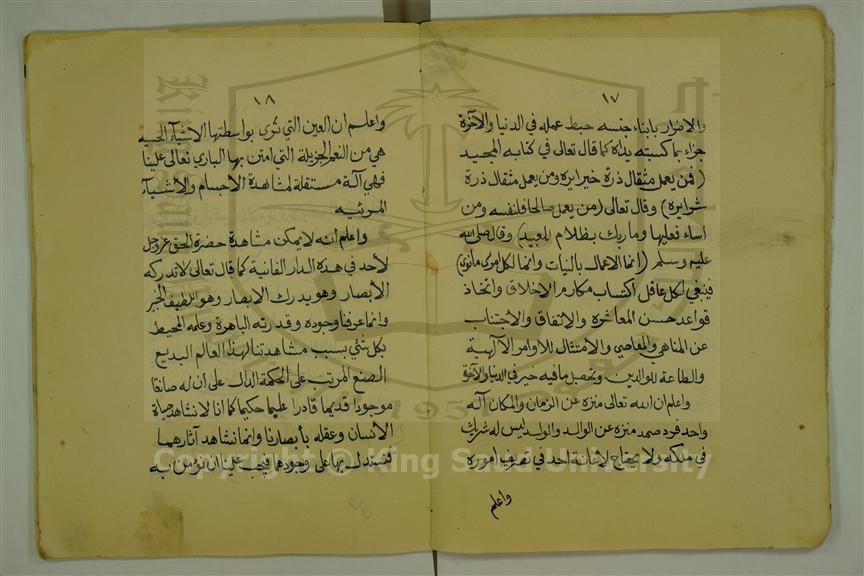 ١٧
والاضرار بابناء جنسه حبط عمله في الدنيا والآخرة
جزاء بما كسبته يداه كما قال تعالى في كتابه المجيد
(فمن يعمل مثقال ذرة خيرا يره ومن يعمل مثقال ذرة
شرا يره) وقال تعالى (من يعمل صالحا فلنفسه ومن
اساء فعليها وما ربك بظلام للعبيد) وقال صلى الله
عليه وسلم (انما الاعمال بالنيات وانما لكل امرئ ما نوى)
فينبغي لكل عاقل اكتساب مكارم الاخلاق واتخاذ
قواعد حسن المعاشرة والاتفاق والاجتناب
عن المناهي والمعاصي والامتثال للاوامر الآلهية
والطاعة للوالدين وتحصيل ما فيه خير في الدنيا والآخرة
واعلم ان الله تعالى منزه عن الزمان والمكان آله
واحد فرد صمد منزه عن الوالد والولد ليس له شريك
في ملكه ولا يحتاج لاعانة احد في تصريف اموره
واعلم
١٨
واعلم ان العين التي ترى بواسطتها الاشيآء الحسيه
هي من النعم الجزيلة التي امتن بها الباري تعالى علينا
فهي آلة مستقلة لمشاهدة الأجسام والأشيآء
المرئيه
واعلم انه لا يمكن مشاهدة حضرة الحق عز وجل
لأحد في هذه الدار الفانية كما قال تعالى لا تدركه
الأبصار وهو يدرك الابصار وهو اللطيف الخبير
وانما عرفنا وجوده وقدرته الباهرة وعلمه المحيط
بكل شئ بسبب مشاهدتنا لهذا العالم البديع
الصنع المرتب على الحكمة الدال على ان له صانعا
موجودا قديما قادرا عليما حكيما كما انا لا نشاهد حياة
الأنسان وعقله بأبصارنا وانما نشاهد آثارهما
فنستدل بها على وجودهما فيجب علينا ان نؤمن به
Copyright © King Saud University
1957